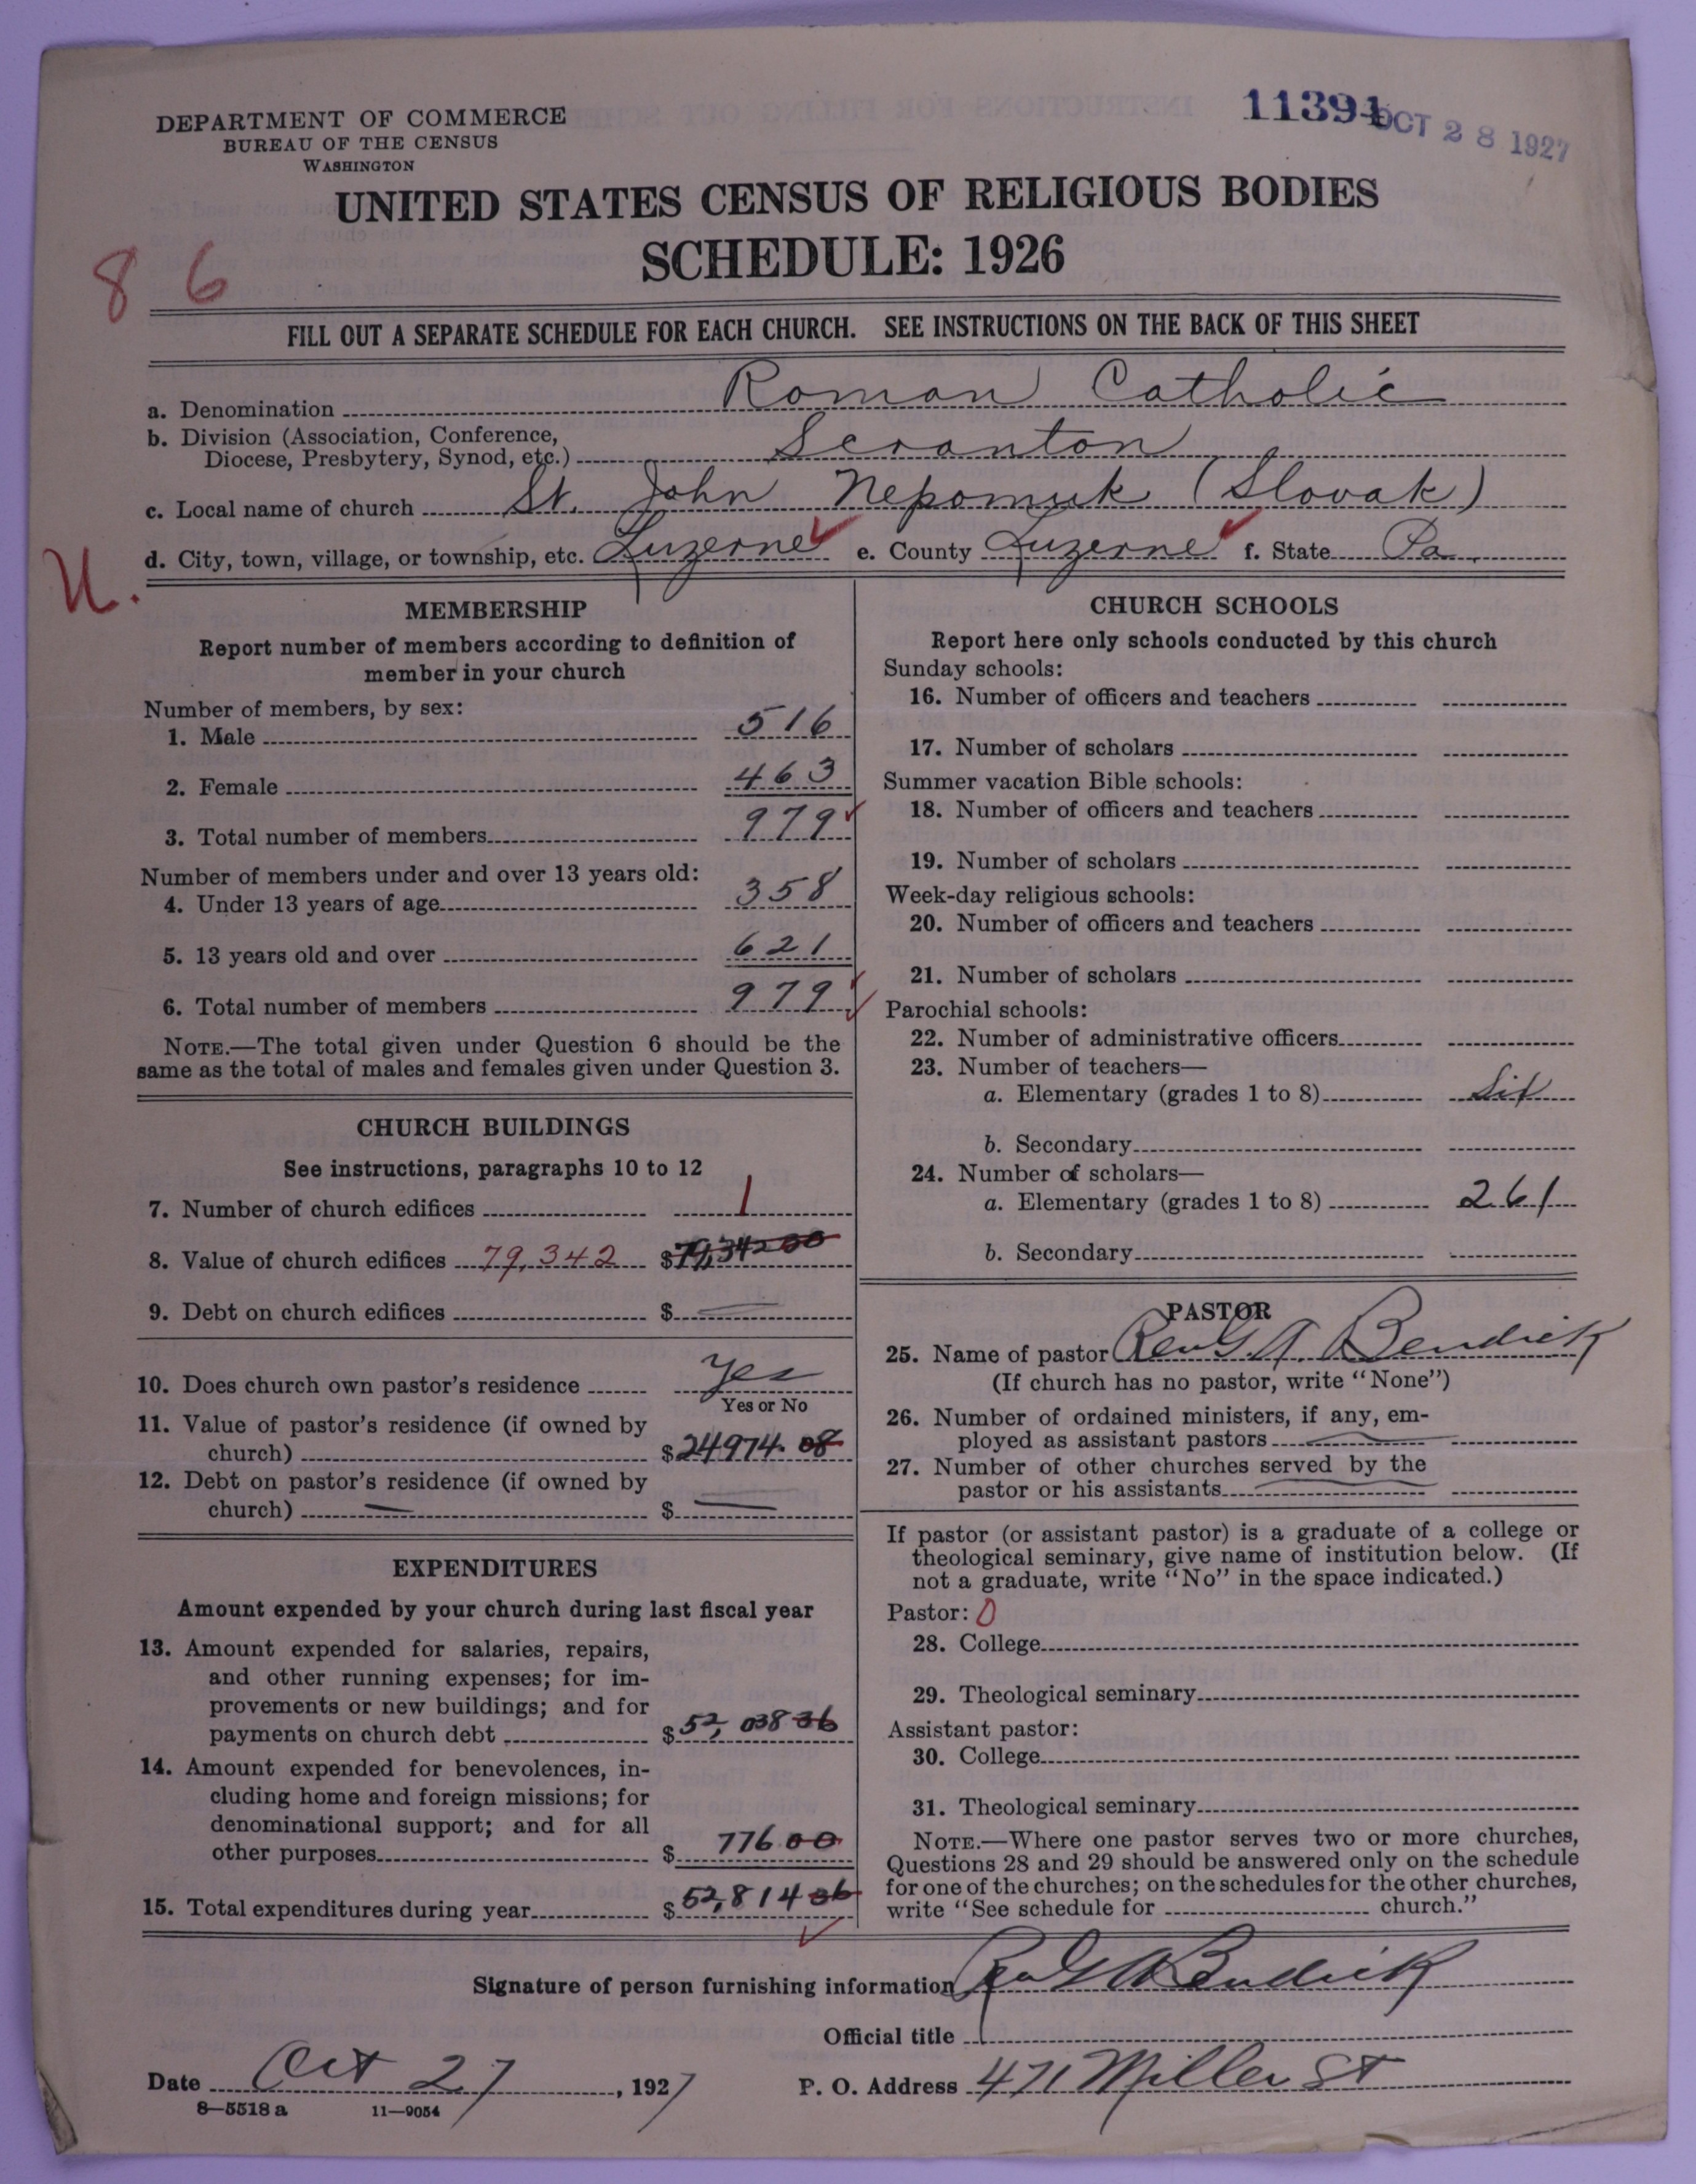 DEPARTMENT OF COMMERCE
BUREAU OF THE CENSUS
WASHINGTON
11391
OCT 28 1927
UNITED STATES CENSUS OF RELIGIOUS BODIES
SCHEDULE: 1926
8 6
FILL OUT A SEPARATE SCHEDULE FOR EACH CHURCH. SEE INSTRUCTIONS ON THE BACK OF THIS SHEET
a. Denomination Roman Catholic
b. Division (Association, Conference,
Diocese, Presbytery, Synod, etc.) Scranton
c. Local name of church St. John Nepomuk (Slovak)
d. City, town, village, or township, etc. Luzerne e. County Luzerne f. State Pa.
U.
MEMBERSHIP
Report number of members according to definition of
member in your church
Number of members, by sex:
1. Male 516
2. Female 463
3. Total number of members 979
Number of members under and over 13 years old:
4. Under 13 years of age 358
5. 13 years old and over 621
6. Total number of members 979
NOTE.—The total given under Question 6 should be the
same as the total of males and females given under Question 3.
CHURCH BUILDINGS
See instructions, paragraphs 10 to 12
7. Number of church edifices 1
8. Value of church edifices 79,342 $79,342 00
9. Debt on church edifices $
10. Does church own pastor's residence Yes
Yes or No
11. Value of pastor's residence (if owned by
church) $24974. 08
12. Debt on pastor's residence (if owned by
church) — $ —
EXPENDITURES
Amount expended by your church during last fiscal year
13. Amount expended for salaries, repairs,
and other running expenses; for im-
provements or new buildings; and for
payments on church debt $52,038 36
14. Amount expended for benevolences, in-
cluding home and foreign missions; for
denominational support; and for all
other purposes $ 776 00
15. Total expenditures during year $52,814 36
CHURCH SCHOOLS
Report here only schools conducted by this church
Sunday schools:
16. Number of officers and teachers
17. Number of scholars
Summer vacation Bible schools:
18. Number of officers and teachers
19. Number of scholars
Week-day religious schools:
20. Number of officers and teachers
21. Number of scholars
Parochial schools:
22. Number of administrative officers
23. Number of teachers—
a. Elementary (grades 1 to 8) Six
b. Secondary
24. Number of scholars—
a. Elementary (grades 1 to 8) 261
b. Secondary
PASTOR
25. Name of pastor Rev G. A. Bendick
(If church has no pastor, write "None")
26. Number of ordained ministers, if any, em-
ployed as assistant pastors —
27. Number of other churches served by the
pastor or his assistants —
If pastor (or assistant pastor) is a graduate of a college or
theological seminary, give name of institution below. (If
not a graduate, write "No" in the space indicated.)
Pastor: 0
28. College
29. Theological seminary
Assistant pastor:
30. College
31. Theological seminary
NOTE.—Where one pastor serves two or more churches,
Questions 28 and 29 should be answered only on the schedule
for one of the churches; on the schedules for the other churches,
write "See schedule for church."
Signature of person furnishing information Rev G A Bendick
Official title
Date Oct 27, 1927 P. O. Address 471 Miller St
8—5518 a 11—9054